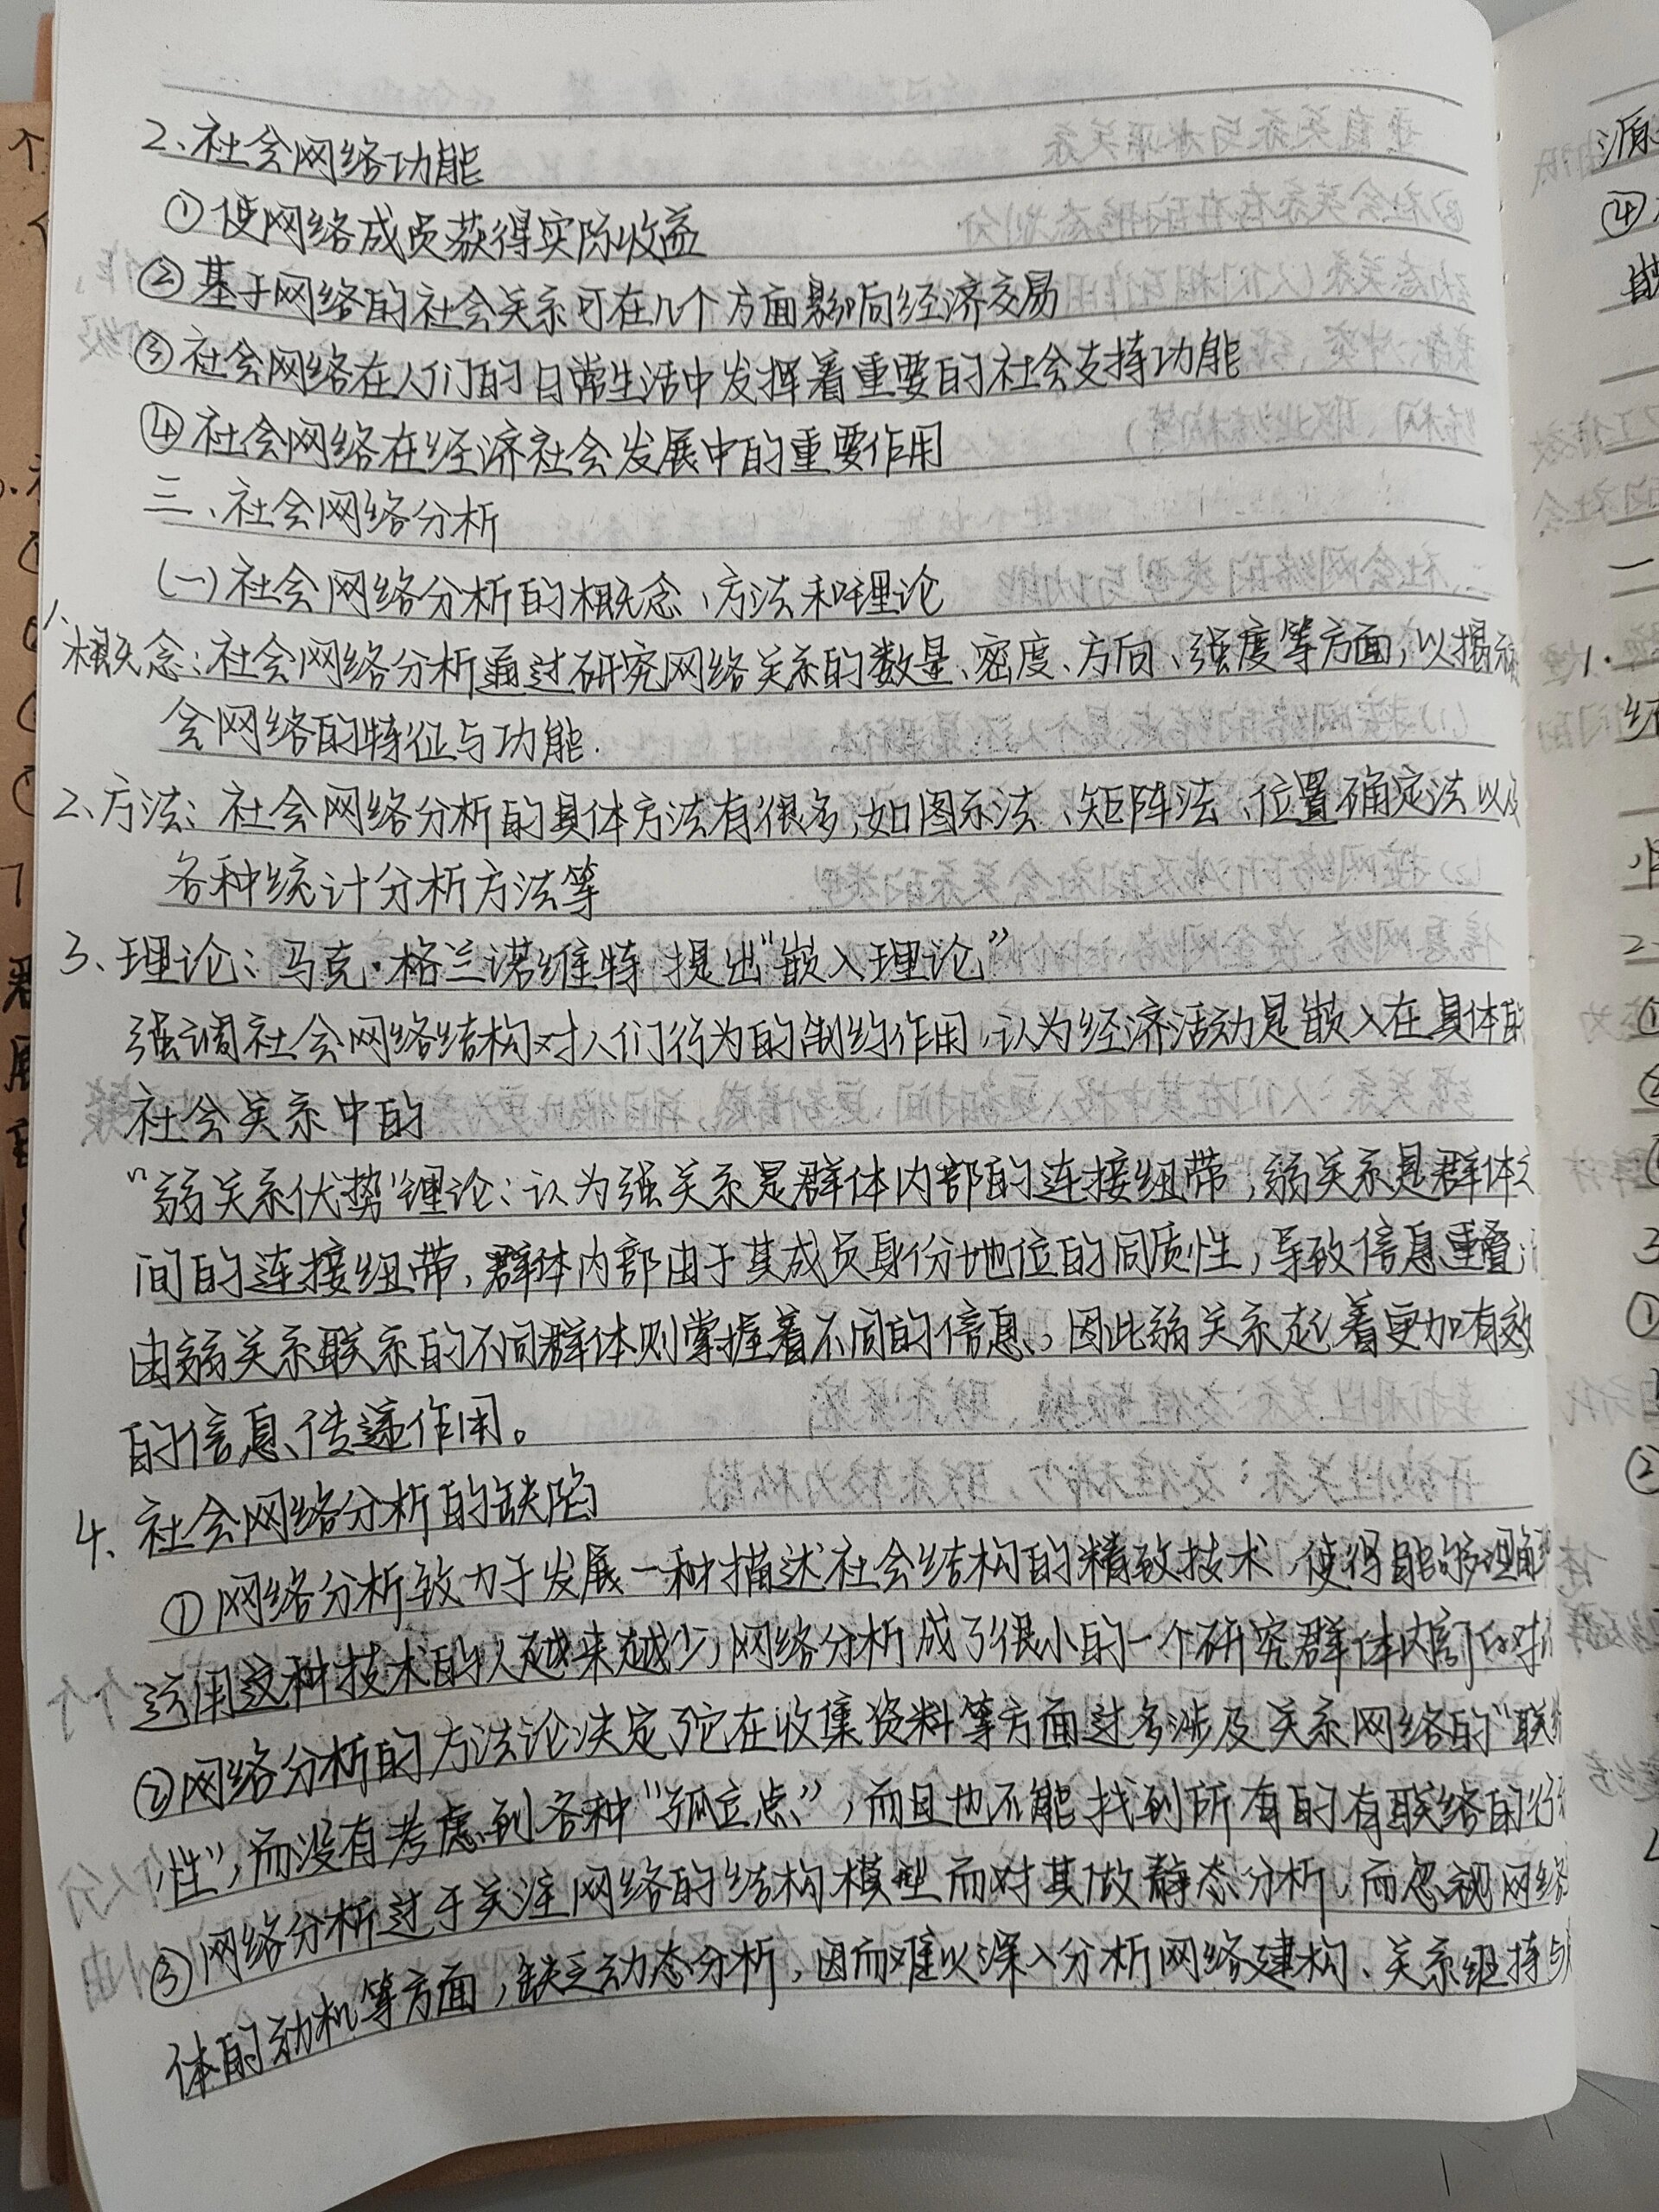 2、社会网络功能
①使网络成员获得实际收益
②基于网络的社会关系可在几个方面影响经济交易
③社会网络在人们的日常生活中发挥着重要的社会支持功能
④社会网络在经济社会发展中的重要作用
三、社会网络分析
(一)社会网络分析的概念、方法和理论
1、概念:社会网络分析通过研究网络关系的数量、密度、方向、强度等方面,以揭示
会网络的特征与功能.
2、方法:社会网络分析的具体方法有很多,如图示法、矩阵法、位置确定法以及
各种统计分析方法等
3、理论:马克·格兰诺维特 提出“嵌入理论”
强调社会网络结构对人们行为的制约作用,认为经济活动是嵌入在具体的
社会关系中的
“弱关系优势”理论:认为强关系是群体内部的连接纽带,弱关系是群体之
间的连接纽带,群体内部由于其成员身份地位的同质性,导致信息重叠,
由弱关系联系的不同群体则掌握着不同的信息,因此弱关系起着更加有效
的信息传递作用。
4、社会网络分析的缺陷
①网络分析致力于发展一种描述社会结构的精致技术,使得能够理解
运用这种技术的人越来越少,网络分析成了很小的一个研究群体内部的
②网络分析的方法论决定了它在收集资料等方面过多涉及关系网络的“联络
性”,而没有考虑到各种“孤立点”,而且也不能找到所有的有联络的行
③网络分析过于关注网络的结构模型而对其做静态分析,而忽视网络
体的动机等方面,缺乏动态分析,因而难以深入分析网络建构、关系维持与
源
④